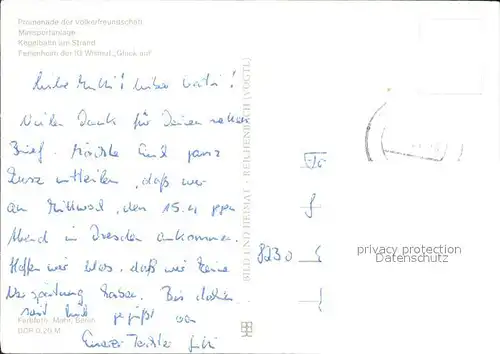 Promenade der Völkerfreundschaft
Minisportanlage
Kegelbahn am Strand
Ferienheim der IG Wismut „Glück auf"
Liebe Mutti! Lieber Vati!
Vielen Dank für Deinen netten
Brief. Möchte Euch ganz
kurz mitteilen, daß wir
am Mittwoch, den 15.4 gegen
Abend in Dresden ankommen.
Hoffen wir blos, daß wir keine
Verspätung haben. Bis dahin
seid lieb gegrüßt von
Eurer Tochter
BILD UND HEIMAT · REICHENBACH (VOGTL)
8230
privacy protection
Datenschutz
Farbfoto: Mohr, Berlin
DDR 0,20 M